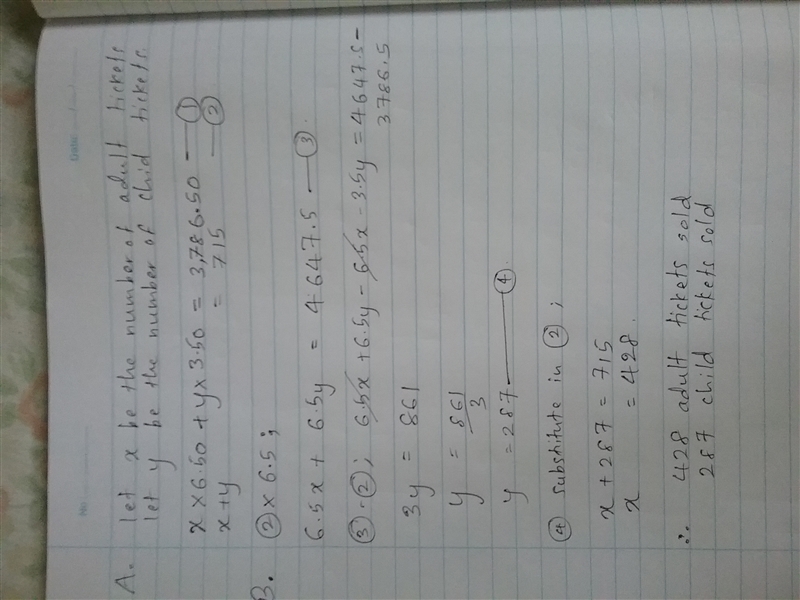 No:
Date:
A. let x be the number of adult tickets
let y be the number of chid tickets.
x × 6.50 + y × 3.50 = 3,786.50 — ①
x + y = 715 — ②
B. ② × 6.5 ;
6.5x + 6.5y = 4647.5 — ③.
③ - ② ; 6.5x + 6.5y - 6.5x - 3.5y = 4647.5 -
3786.5
3y = 861
y = 861/3
y = 287 — ④.
④ substitute in ② ;
x + 287 = 715
x = 428.
∴ 428 adult tickets sold
287 child tickets sold